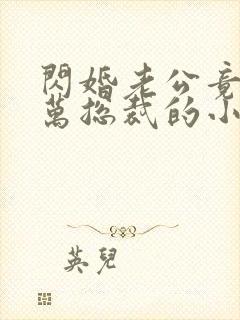 閃婚老公竟
萬總裁的小
英兒